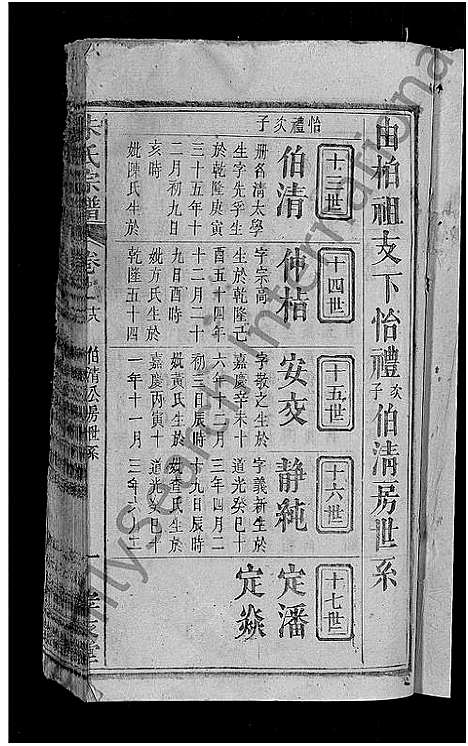 由柏祖支下怡禮次子伯清房世系
十三世
十四世
十五世
十六世
十七世
怡禮次子
伯清
册名清太學
生字先孚生
於乾隆庚寅
三十五年十
二月初九日
亥時
妣陳氏生於
乾隆五十四
仲桔
字宗高
生於乾隆己
酉五十四年
十二月二十
九日酉時
妣方氏生於
嘉慶丙寅十
一年十一月
安交
字敬之生於
嘉慶辛未十
六年十二月
初三日辰時
妣黃氏生於
道光癸巳十
三年
二
静純
字義新生於
道光癸巳十
三年四月二
十九日辰時
妣查氏生於
定潘
定焱
朱氏宗譜
卷
伯清公房世系
堂
mysearch International